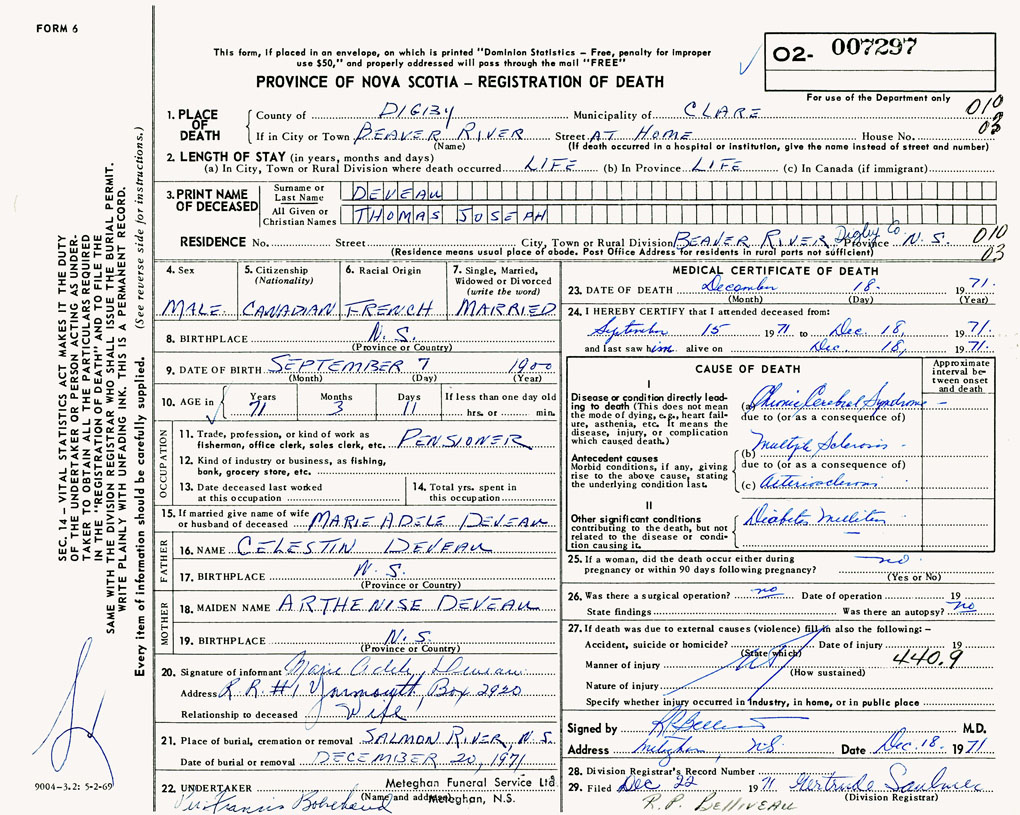 FORM 6
This form, if placed in an envelope, on which is printed "Dominion Statistics – Free, penalty for improper
use $50," and properly addressed will pass through the mail "FREE"
PROVINCE OF NOVA SCOTIA – REGISTRATION OF DEATH
02- 007297
For use of the Department only
010
03
1. PLACE OF DEATH
County of DIGBY Municipality of CLARE
If in City or Town BEAVER RIVER Street AT HOME House No.
(Name) (If death occurred in a hospital or institution, give the name instead of street and number)
2. LENGTH OF STAY (in years, months and days)
(a) In City, Town or Rural Division where death occurred LIFE (b) In Province LIFE (c) In Canada (if immigrant)
3. PRINT NAME OF DECEASED
Surname or Last Name DEVEAU
All Given or Christian Names THOMAS JOSEPH
RESIDENCE No. Street City, Town or Rural Division BEAVER RIVER Digby Co Province N.S. 010
(Residence means usual place of abode. Post Office Address for residents in rural parts not sufficient) 03
4. Sex
MALE
5. Citizenship
(Nationality)
CANADIAN
6. Racial Origin
FRENCH
7. Single, Married,
Widowed or Divorced
(write the word)
MARRIED
8. BIRTHPLACE N.S.
(Province or Country)
9. DATE OF BIRTH SEPTEMBER 7 1900
(Month) (Day) (Year)
10. AGE in
Years 71
Months 3
Days 11
If less than one day old
hrs. or min.
OCCUPATION
11. Trade, profession, or kind of work as
fisherman, office clerk, sales clerk, etc. PENSIONER
12. Kind of industry or business, as fishing,
bank, grocery store, etc.
13. Date deceased last worked
at this occupation
14. Total yrs. spent in
this occupation
15. If married give name of wife
or husband of deceased MARIE ADELE DEVEAU
FATHER
16. NAME CELESTIN DEVEAU
17. BIRTHPLACE N.S.
(Province or Country)
MOTHER
18. MAIDEN NAME ARTHENISE DEVEAU
19. BIRTHPLACE N.S.
(Province or Country)
20. Signature of informant Marie Adele Deveau
Address R.R. #1 Yarmouth, Box 2920
Relationship to deceased Wife
21. Place of burial, cremation or removal SALMON RIVER, N.S.
Date of burial or removal DECEMBER 20, 1971
22. UNDERTAKER Meteghan Funeral Service Ltd.
(Name and address) Meteghan, N.S.
Per Francis
MEDICAL CERTIFICATE OF DEATH
23. DATE OF DEATH December 18 1971.
(Month) (Day) (Year)
24. I HEREBY CERTIFY that I attended deceased from:
September 15 1971 to Dec. 18, 1971.
and last saw him alive on Dec. 18, 1971.
CAUSE OF DEATH
Approximate
interval be-
tween onset
and death
I
Disease or condition directly lead-
ing to death (This does not mean
the mode of dying, e.g., heart fail-
ure, asthenia, etc. It means the
disease, injury, or complication
which caused death.)
(a) Chronic Cerebral Syndrome –
due to (or as a consequence of)
Antecedent causes
Morbid conditions, if any, giving
rise to the above cause, stating
the underlying condition last.
(b) Multiple Sclerosis -
due to (or as a consequence of)
(c) Arteriosclerosis
II
Other significant conditions
contributing to the death, but not
related to the disease or condi-
tion causing it.
Diabetes Mellitus
25. If a woman, did the death occur either during
pregnancy or within 90 days following pregnancy? no
(Yes or No)
26. Was there a surgical operation? no Date of operation 19
State findings Was there an autopsy? no
27. If death was due to external causes (violence) fill in also the following:–
Accident, suicide or homicide? Date of injury 19
(State which) 440.9
Manner of injury
(How sustained)
Nature of injury
Specify whether injury occurred in industry, in home, or in public place
Signed by M.D.
Address Meteghan, N.S. Date Dec. 18 1971
28. Division Registrar's Record Number
29. Filed Dec 22 1971 Gertrude Saulnier
(Division Registrar)
R.P. BELLIVEAU
SEC. 14 – VITAL STATISTICS ACT MAKES IT THE DUTY
OF THE UNDERTAKER OR PERSON ACTING AS UNDER-
TAKER TO OBTAIN ALL THE PARTICULARS REQUIRED
IN THE "REGISTRATION OF DEATH" AND TO FILE THE
SAME WITH THE DIVISION REGISTRAR WHO SHALL ISSUE THE BURIAL PERMIT.
WRITE PLAINLY WITH UNFADING INK. THIS IS A PERMANENT RECORD.
Every item of information should be carefully supplied. (See reverse side for instructions.)
9004-3.2: 5-2-69